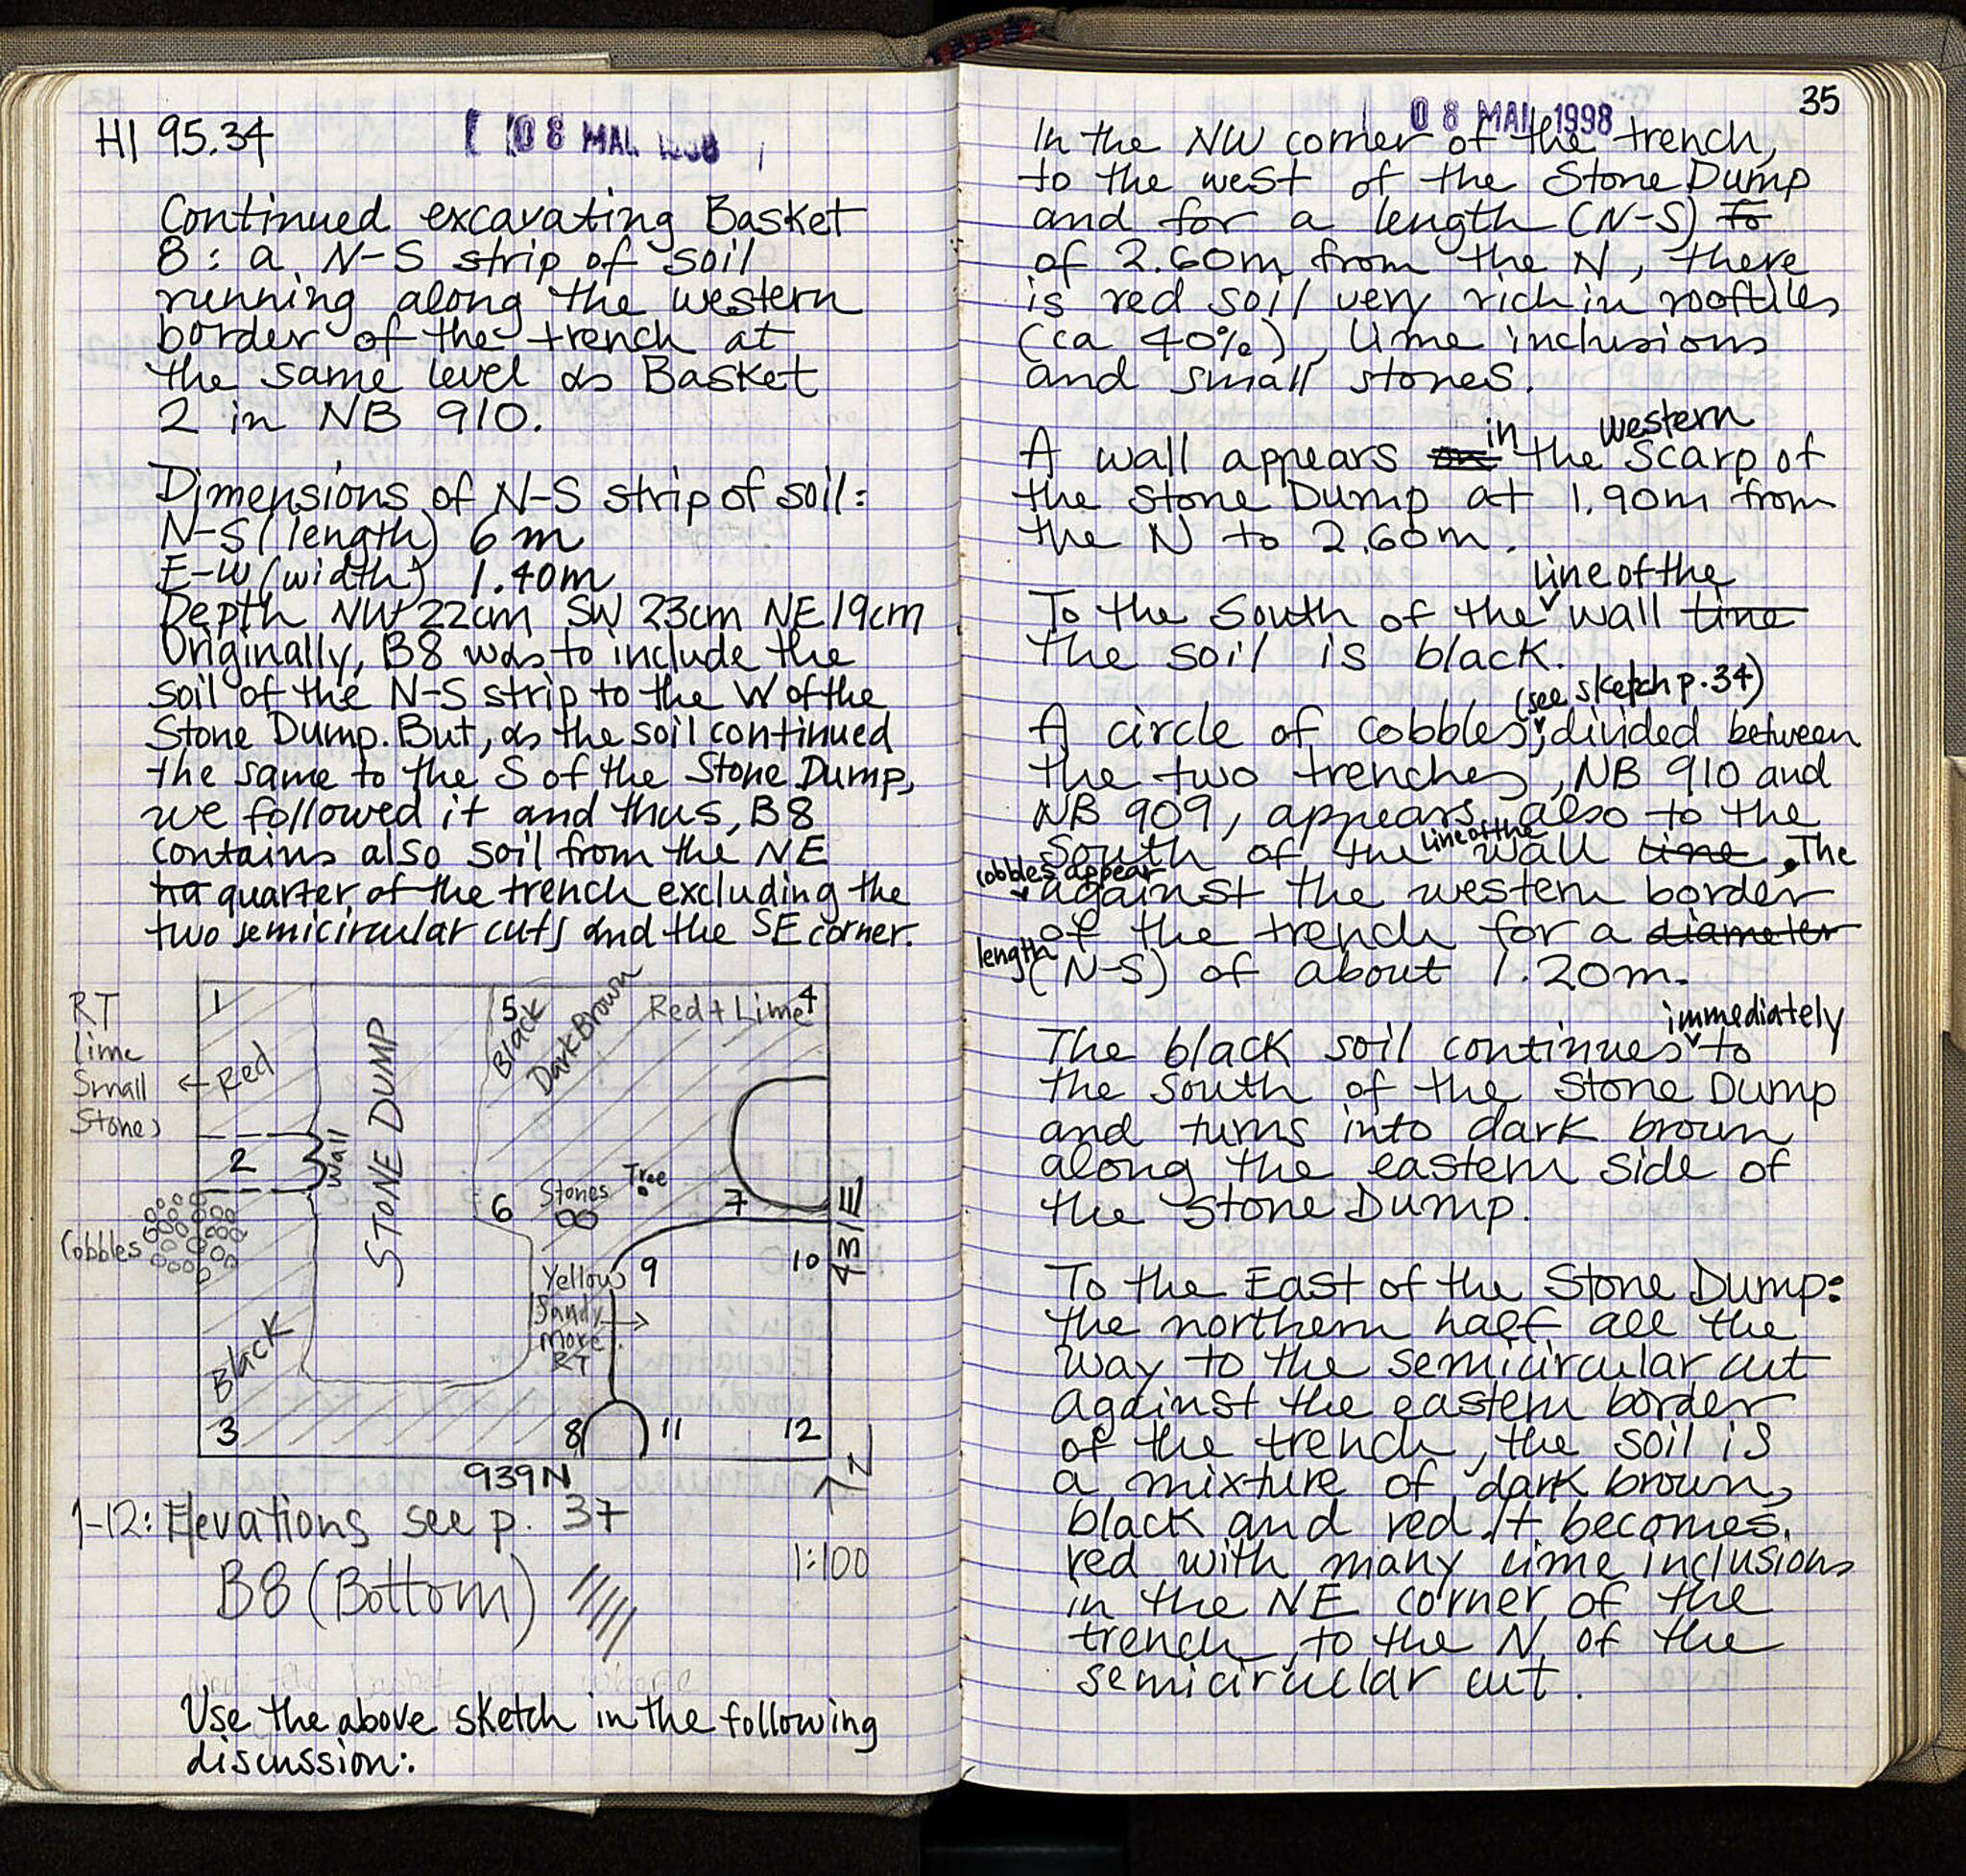 HI 95.34
08 MAI 1998
Continued excavating Basket
8: a N-S strip of soil
running along the western
border of the trench at
the same level as Basket
2 in NB 910.
Dimensions of N-S strip of soil:
N-S (length) 6 m
E-W (width) 1.40m
Depth NW 22cm SW 23cm NE 19cm
Originally, B8 was to include the
soil of the N-S strip to the W of the
Stone Dump. But, as the soil continued
the same to the S of the Stone Dump,
we followed it and thus, B8
contains also soil from the NE
ha quarter of the trench excluding the
two semicircular cuts and the SE corner.
RT
lime
Small
Stones
1
Red
2
Wall
STONE DUMP
5
Black
Dark Brown
Red + Lime
4
6
Stones
Tree
7
431E
Cobbles
Yellow
Sandy
more
RT
9
10
Black
3
8
11
12
939N
N
1-12: Elevations see p. 37
1:100
B8 (Bottom)
Use the above sketch in the following
discussion:
35
08 MAI 1998
In the NW corner of the trench,
to the west of the Stone Dump
and for a length (N-S) to
of 2.60m from the N, there
is red soil very rich in rooftiles
(ca 40%), lime inclusions
and small stones.
A wall appears on in the western scarp of
the Stone Dump at 1.90m from
the N to 2.60m.
To the South of the line of the wall line
the soil is black.
A circle of cobbles (see sketch p. 34), divided between
the two trenches, NB 910 and
NB 909, appears also to the
South of the line of the wall line. The
cobbles appear against the western border
of the trench for a diameter
length (N-S) of about 1.20m.
The black soil continues immediately to
the South of the Stone Dump
and turns into dark brown
along the eastern side of
the Stone Dump.
To the East of the Stone Dump:
the northern half all the
way to the semicircular cut
against the eastern border
of the trench, the soil is
a mixture of dark brown,
black and red. It becomes
red with many lime inclusions
in the NE corner of the
trench, to the N of the
semicircular cut.